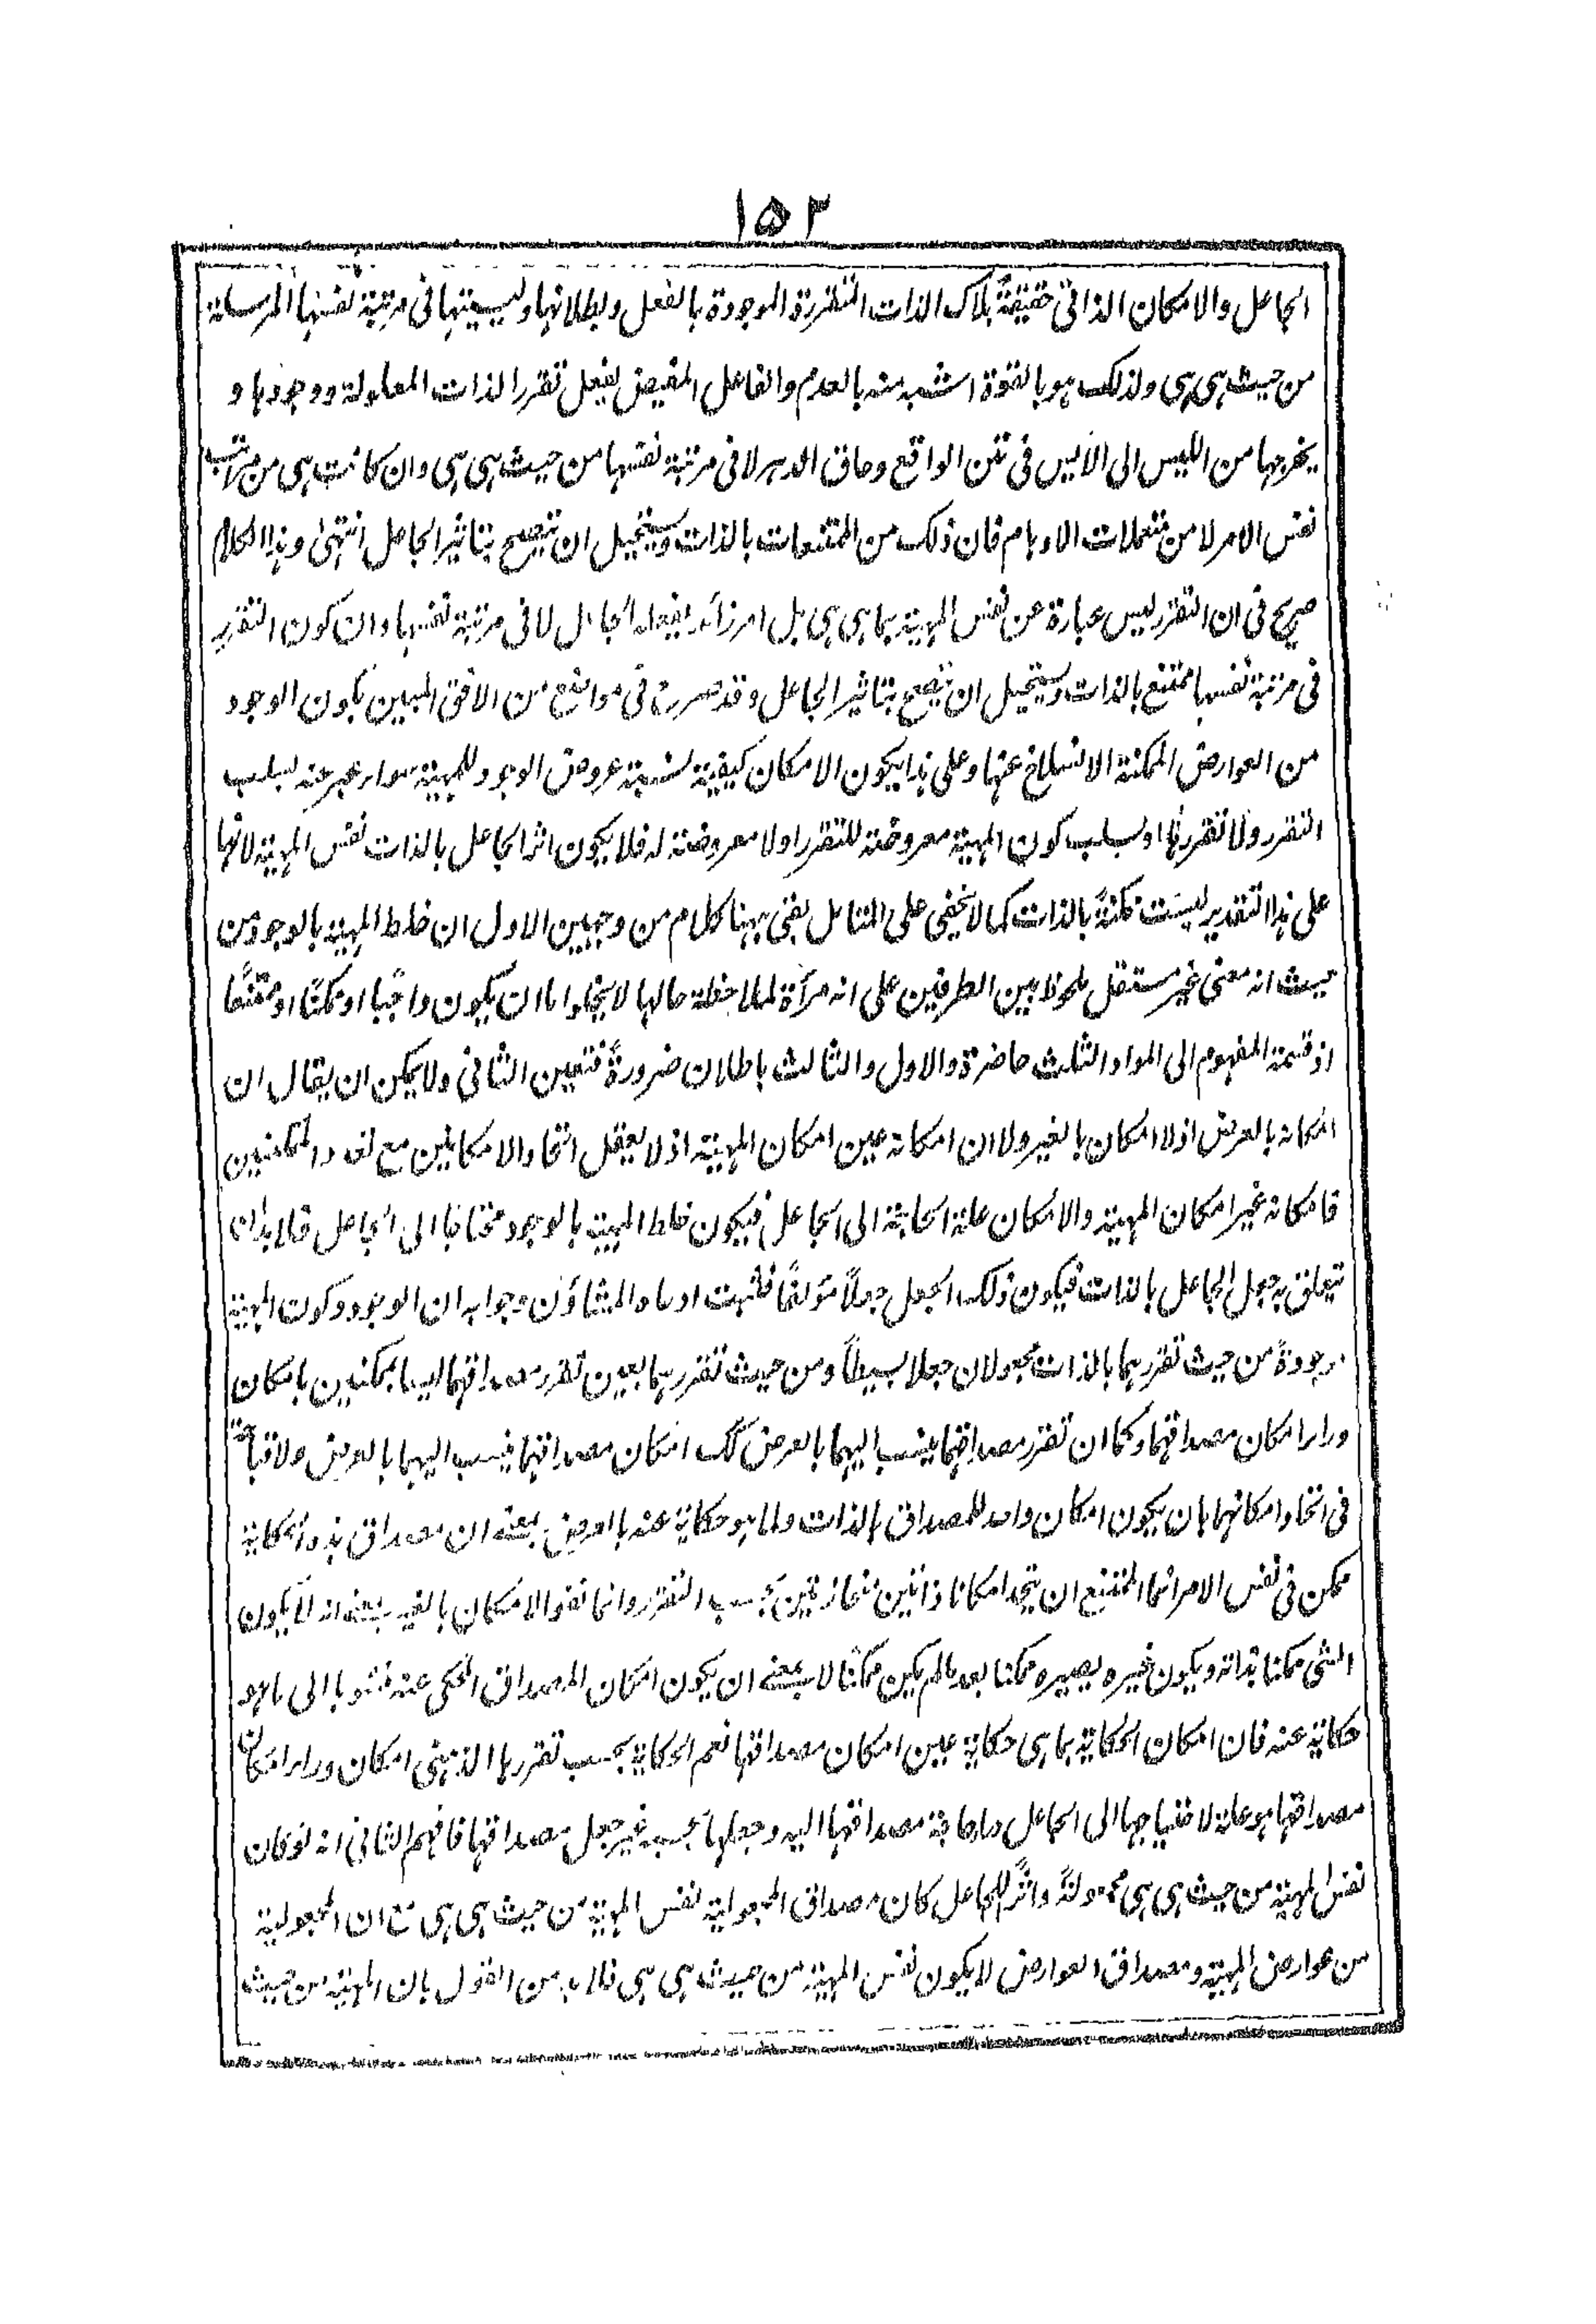 ١٥٣
الجاعل والامكان الذاتي حقيقةً هلاك الذات المتقررة الموجودة بالفعل وبطلانها وليسيتها في مرتبة نفسها المرسلة
من حيث هي هي ولذلك هو بالقوة اشبه منه بالعدم والفاعل المفيض يفعل تقرر الذات المعلولة ووجودها و
يخرجها من الليس الى الأيس في متن الواقع وحاق الدهر لا في مرتبة نفسها من حيث هي هي وان كانت هي من مراتب
نفس الامر لا من متعملات الاوهام فان ذلك من الممتنعات بالذات ويستحيل ان يتصحح بتاثير الجاعل انتهى وهذا الكلام
صريح في ان التقرر ليس عبارة عن نفس المهية بما هي هي بل امر زائد يفعله الجاعل لا في مرتبة نفسها وان كون التقرر
في مرتبة نفسها ممتنع بالذات ويستحيل ان يتصحح بتاثير الجاعل وقد صرح في مواضع من الافق المبين بكون الوجود
من العوارض الممكنة الانسلاخ عنها وعلى هذا يكون الامكان كيفية نسبة عروض الوجود للمهية سواء عبر عنه بسلب
التقرر ولا تقررها او بسلب كون المهية معروضة للتقرر او لا معروضة له فلا يكون اثر الجاعل بالذات نفس المهية لانها
على هذا التقدير ليست ممكنةً بالذات كما لا يخفى على المتامل بقي ههنا كلام من وجهين الاول ان خلط المهية بالوجود من
حيث انه معنى غير مستقل ملحوظ بين الطرفين على انه مرآة لملاحظة حالها لا يخلو اما ان يكون واجبًا او ممكنًا او ممتنعًا
اذ قسمة المفهوم الى المواد الثلث حاضرة والاول والثالث باطلان ضرورةً فتعين الثاني ولا يمكن ان يقال ان
امكانه بالعرض اذ لا امكان بالغير ولا ان امكانه عين امكان المهية اذ لا يعقل اتحاد الامكانين مع تعدد الممكنين
فامكانه غير امكان المهية والامكان علة الحاجة الى الجاعل فيكون خلط المهية بالوجود محتاجا الى الجاعل فلا بد ان
يتعلق به جعل الجاعل بالذات فيكون ذلك الجعل جعلاً مؤلفًا فثبت ادعاه المشاؤن وجوابه ان الوجود وكون المهية
موجودةً من حيث تقررهما بالذات مجعولان جعلا بسيطاً ومن حيث تقررهما بعين تقرر مصداقهما ليسا بممكنين بامكان
وراء امكان مصداقهما وكما ان تقرر مصداقهما ينسب اليهما بالعرض كك امكان مصداقهما ينسب اليهما بالعرض ولا قباحة
في اتحاد امكانهما بان يكون امكان واحد للمصداق بالذات ولما هو حكاية عنه بالعرض بمعنه ان مصداق هذه الحكاية
ممكن في نفس الامر انما الممتنع ان يتحد امكانا ذاتين متمايزتين بحسب التقرر وانما نفوا الامكان بالغير بمعنه انه لا يكون
الشى ممكنا بذاته ويكون غيره يصيره ممكنا بعد ما لم يكن ممكنًا لا بمعنه ان يكون امكان المصداق المحكى عنه منسوبا الى ما هو
حكاية عنه فان امكان الحكاية بما هي حكاية عين امكان مصداقها نعم الحكاية بحسب تقررها الذهني امكان وراء امكان
مصداقها هو علة لاحتياجها الى الجاعل وراء حاجة مصداقها اليه وجعلها بحسبه غير جعل مصداقها فافهم الثاني انه لو كان
نفس المهية من حيث هي هي مجعولةً واثرًا للجاعل كان مصداق المجعولية نفس المهية من حيث هي هي مع ان المجعولية
من عوارض المهية ومصداق العوارض لا يكون نفس المهية من حيث هي هي فلا بد من القول بان المهية من حيث